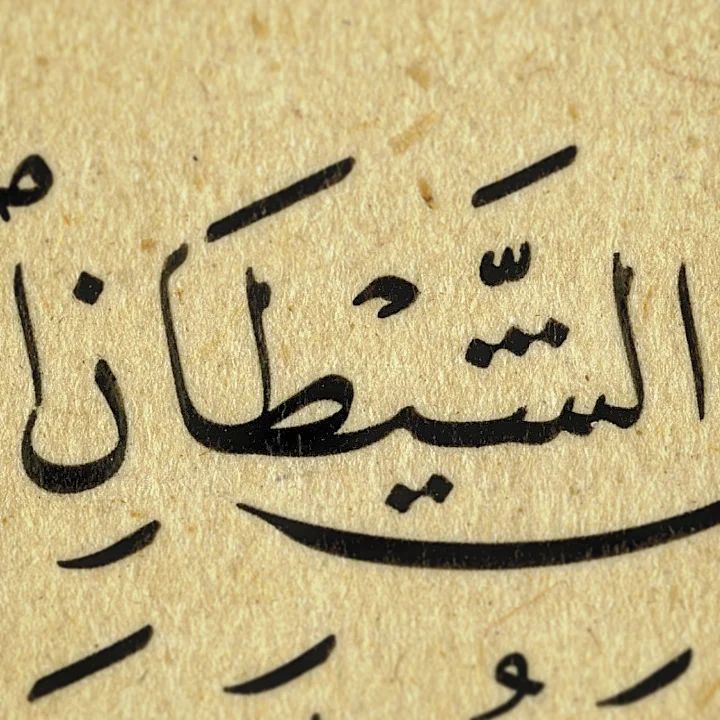 الشَّيْطَانِ